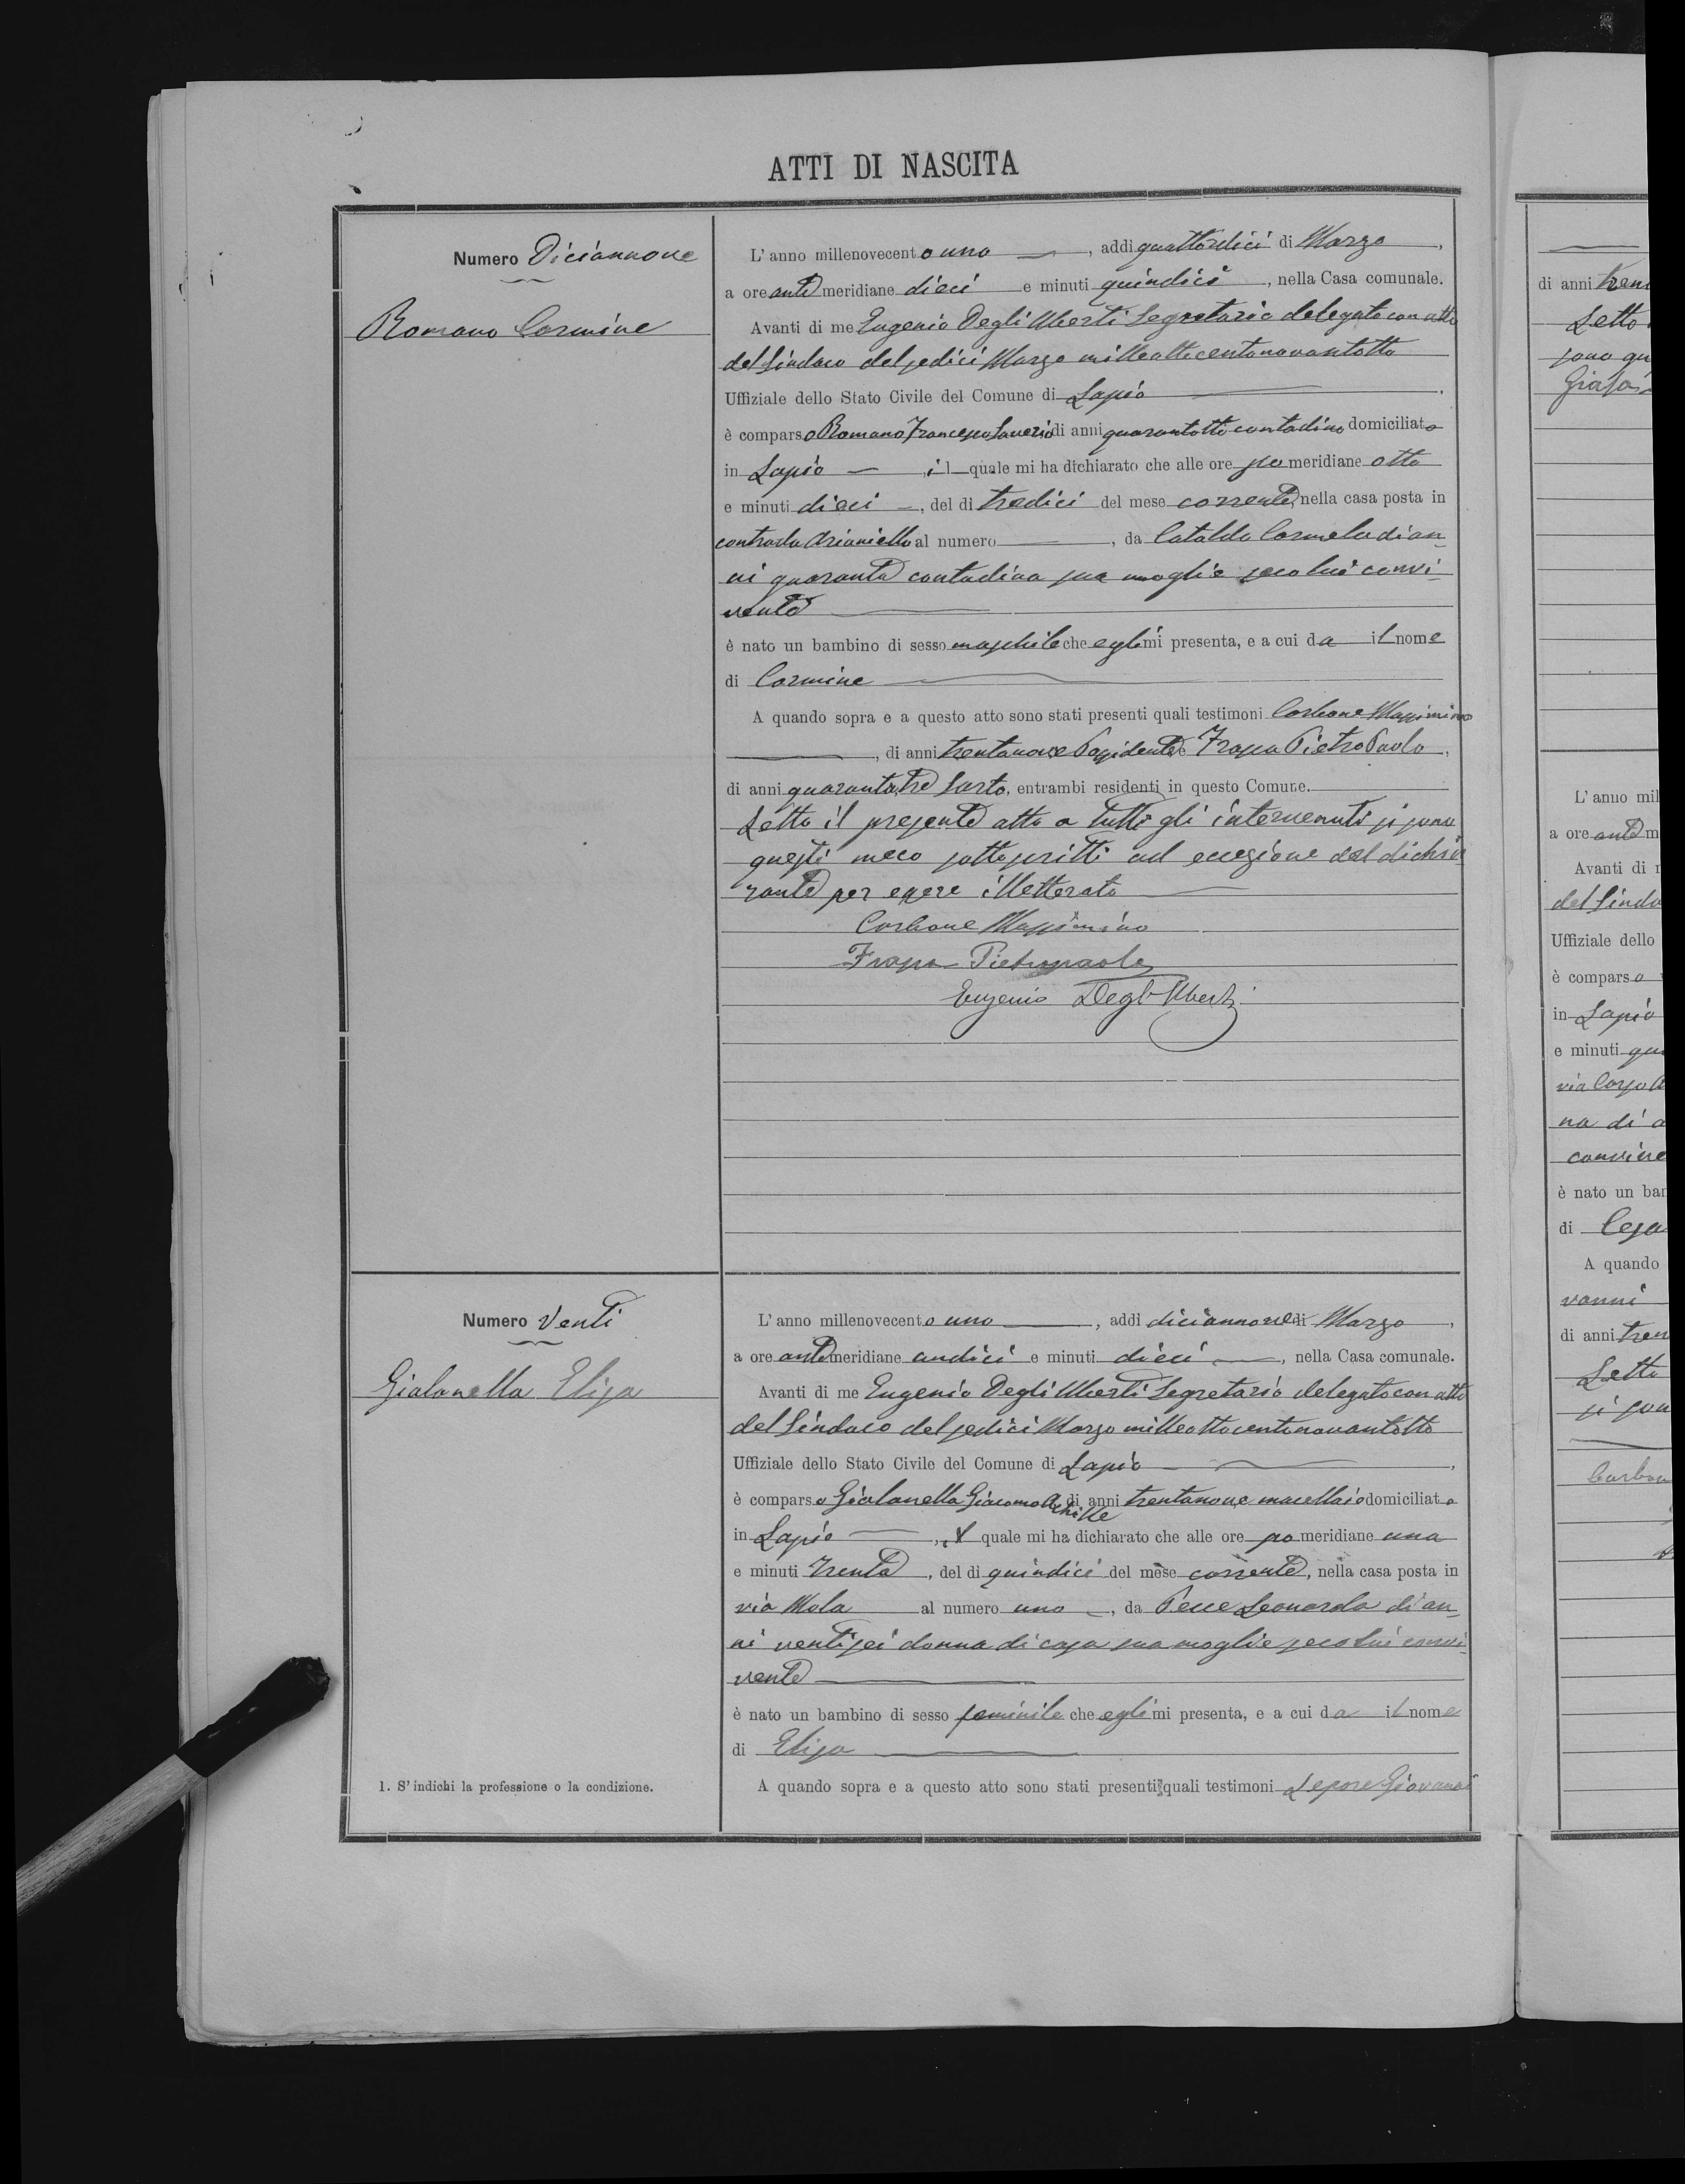 ATTI DI NASCITA
Numero Diciannove
Romano Carmine
L'anno millenovecento uno, addì quattordici di Marzo,
a ore ante meridiane dieci e minuti quindici, nella Casa comunale.
Avanti di me Eugenio Degli Uberti Segretario delegato con atto
del Sindaco del sedici Marzo milleottocentonovantotto
Uffiziale dello Stato Civile del Comune di Lapio.
è comparso Romano Francesco Saverio di anni quarantotto contadino domiciliato
in Lapio, il quale mi ha dichiarato che alle ore pomeridiane otto
e minuti dieci, del dì tredici del mese corrente, nella casa posta in
contrada Arianiello al numero, da Cataldo Carmela di an-
ni quaranta contadina sua moglie seco lui convi-
vente
è nato un bambino di sesso maschile che egli mi presenta, e a cui da il nome
di Carmine
A quando sopra e a questo atto sono stati presenti quali testimoni Carbone Massimino
, di anni trentanove Possidente e Frasca Pietro Paolo,
di anni quarantatre Sarto, entrambi residenti in questo Comune.
Letto il presente atto a tutti gli intervenuti si sono
questi meco sottoscritti ad eccezione del dichia
rante per essere illetterato
Carbone Massimino
Pietropaolo
Eugenio Degli Uberti
Numero Venti
Gialanella Elisa
L'anno millenovecento uno, addì diciannove di Marzo,
a ore antemeridiane undici e minuti dieci, nella Casa comunale.
Avanti di me Eugenio Degli Uberti Segretario delegato con atto
del Sindaco del sedici Marzo milleottocentonovantotto
Uffiziale dello Stato Civile del Comune di Lapio,
è comparso Gialanella Giacomo Achille di anni trentanove macellaio domiciliato
in Lapio, il quale mi ha dichiarato che alle ore pomeridiane una
e minuti trenta, del dì quindici del mese corrente, nella casa posta in
via Mola al numero uno, da Pece Leonarda di an-
ni ventisei donna di casa sua moglie seco lui convi-
vente
è nato un bambino di sesso feminile che egli mi presenta, e a cui da il nome
di Elisa
A quando sopra e a questo atto sono stati presenti quali testimoni Lepore Giovanni
1. S'indichi la professione o la condizione.
di anni tren
Letto
sono qu
L'anno mil
a ore ante m
Avanti di
del Sinda
Uffiziale dello
è comparso
in Lapio
e minuti qu
via Corso
na di a
convive
è nato un ba
di Cesa
A quando
vanni
di anni tren
Letto
si son
Carbon